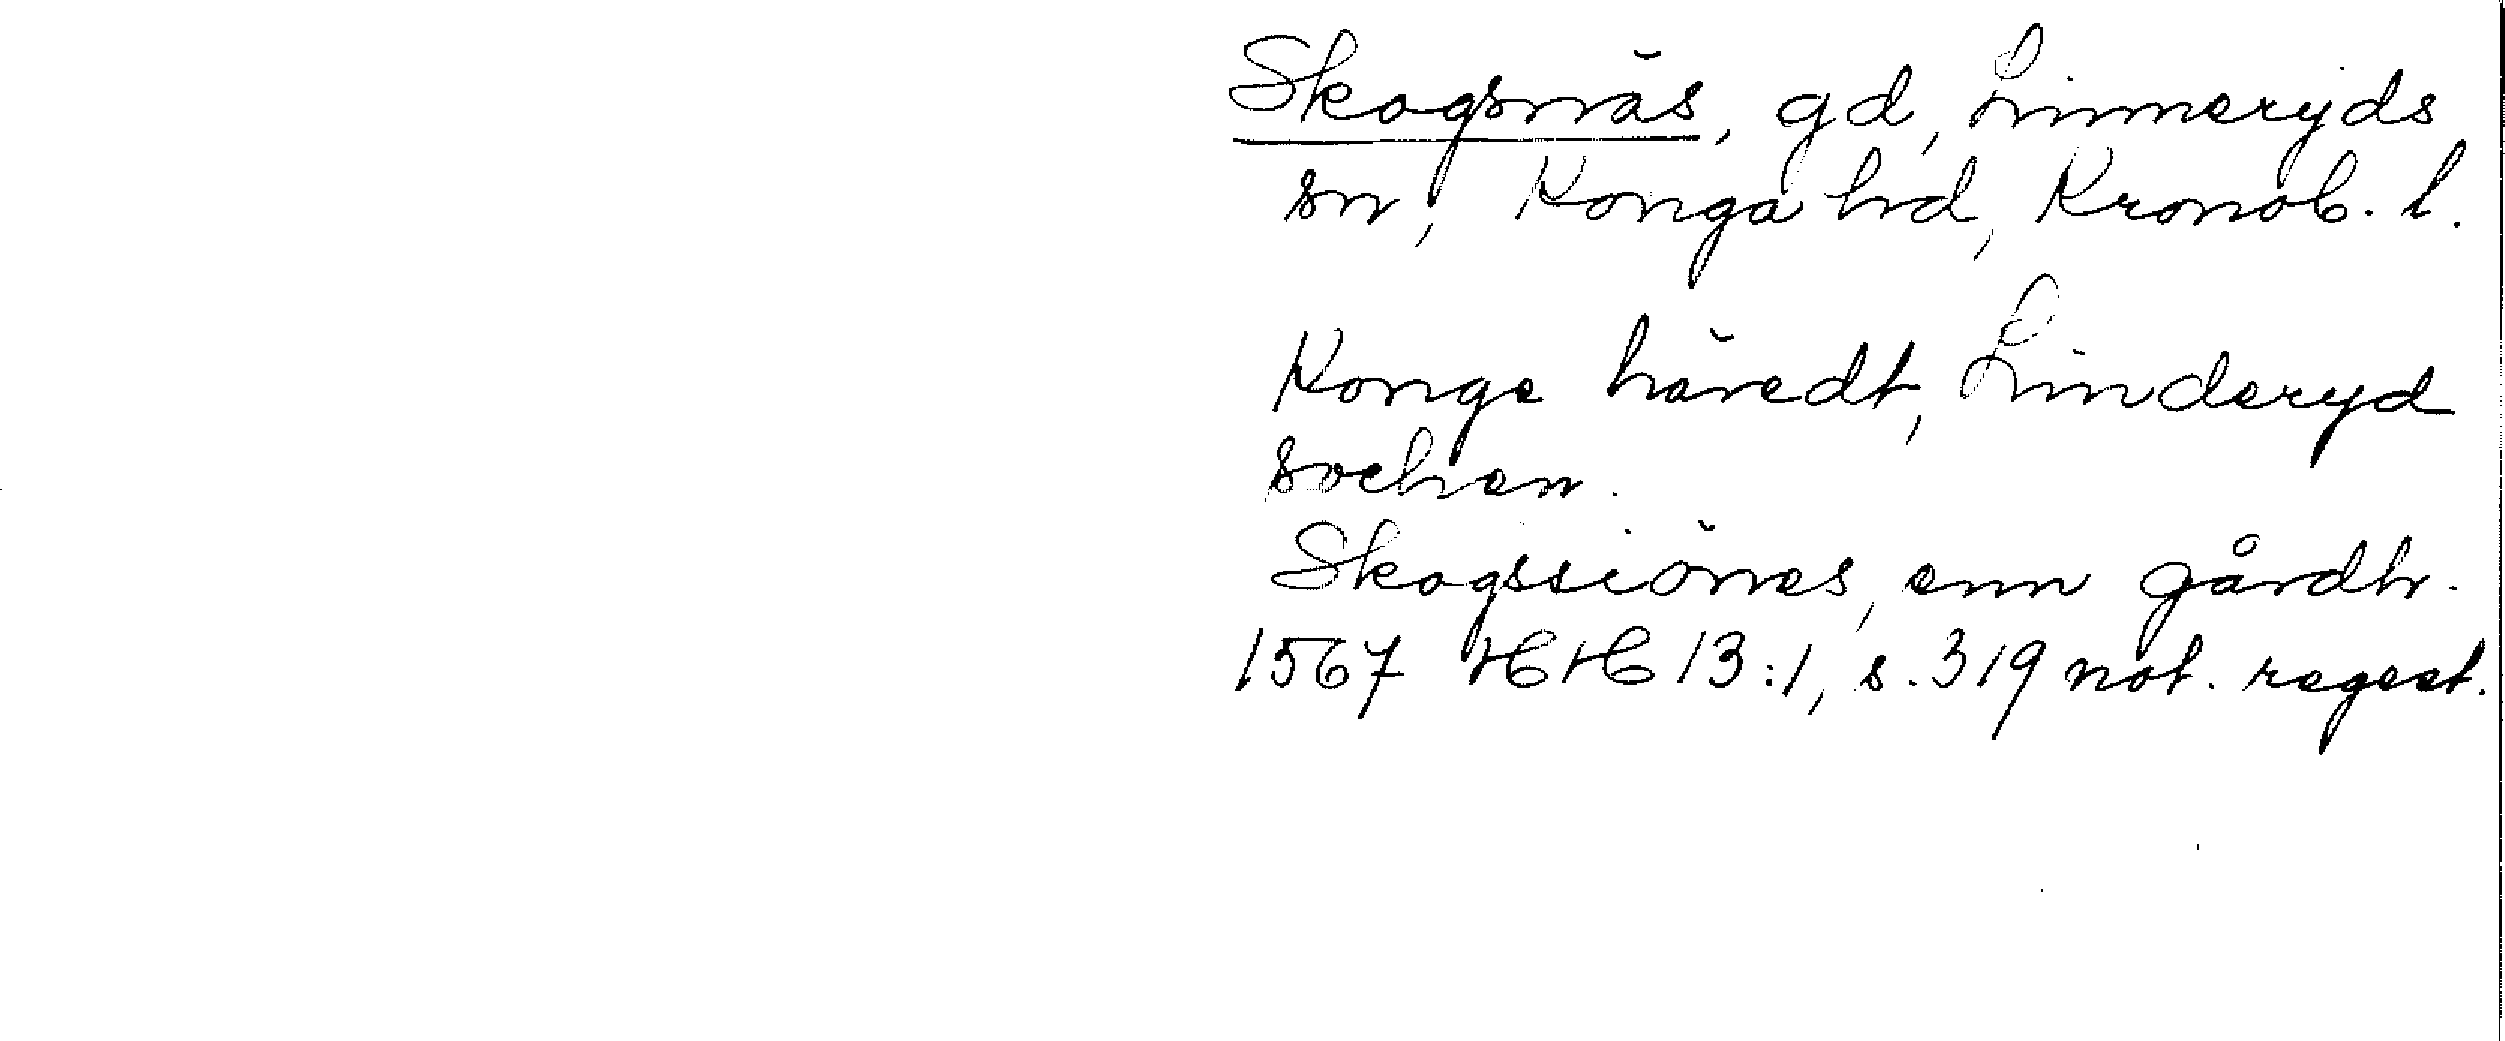 Skogsnäs, gd, Linneryds
sn, Konga hd, Kronob. l.
Konge häredt, Linderyd
sochen.
Skogssiönes, enn gårdh.
1567 HH 13:1, s. 319 not. regest.